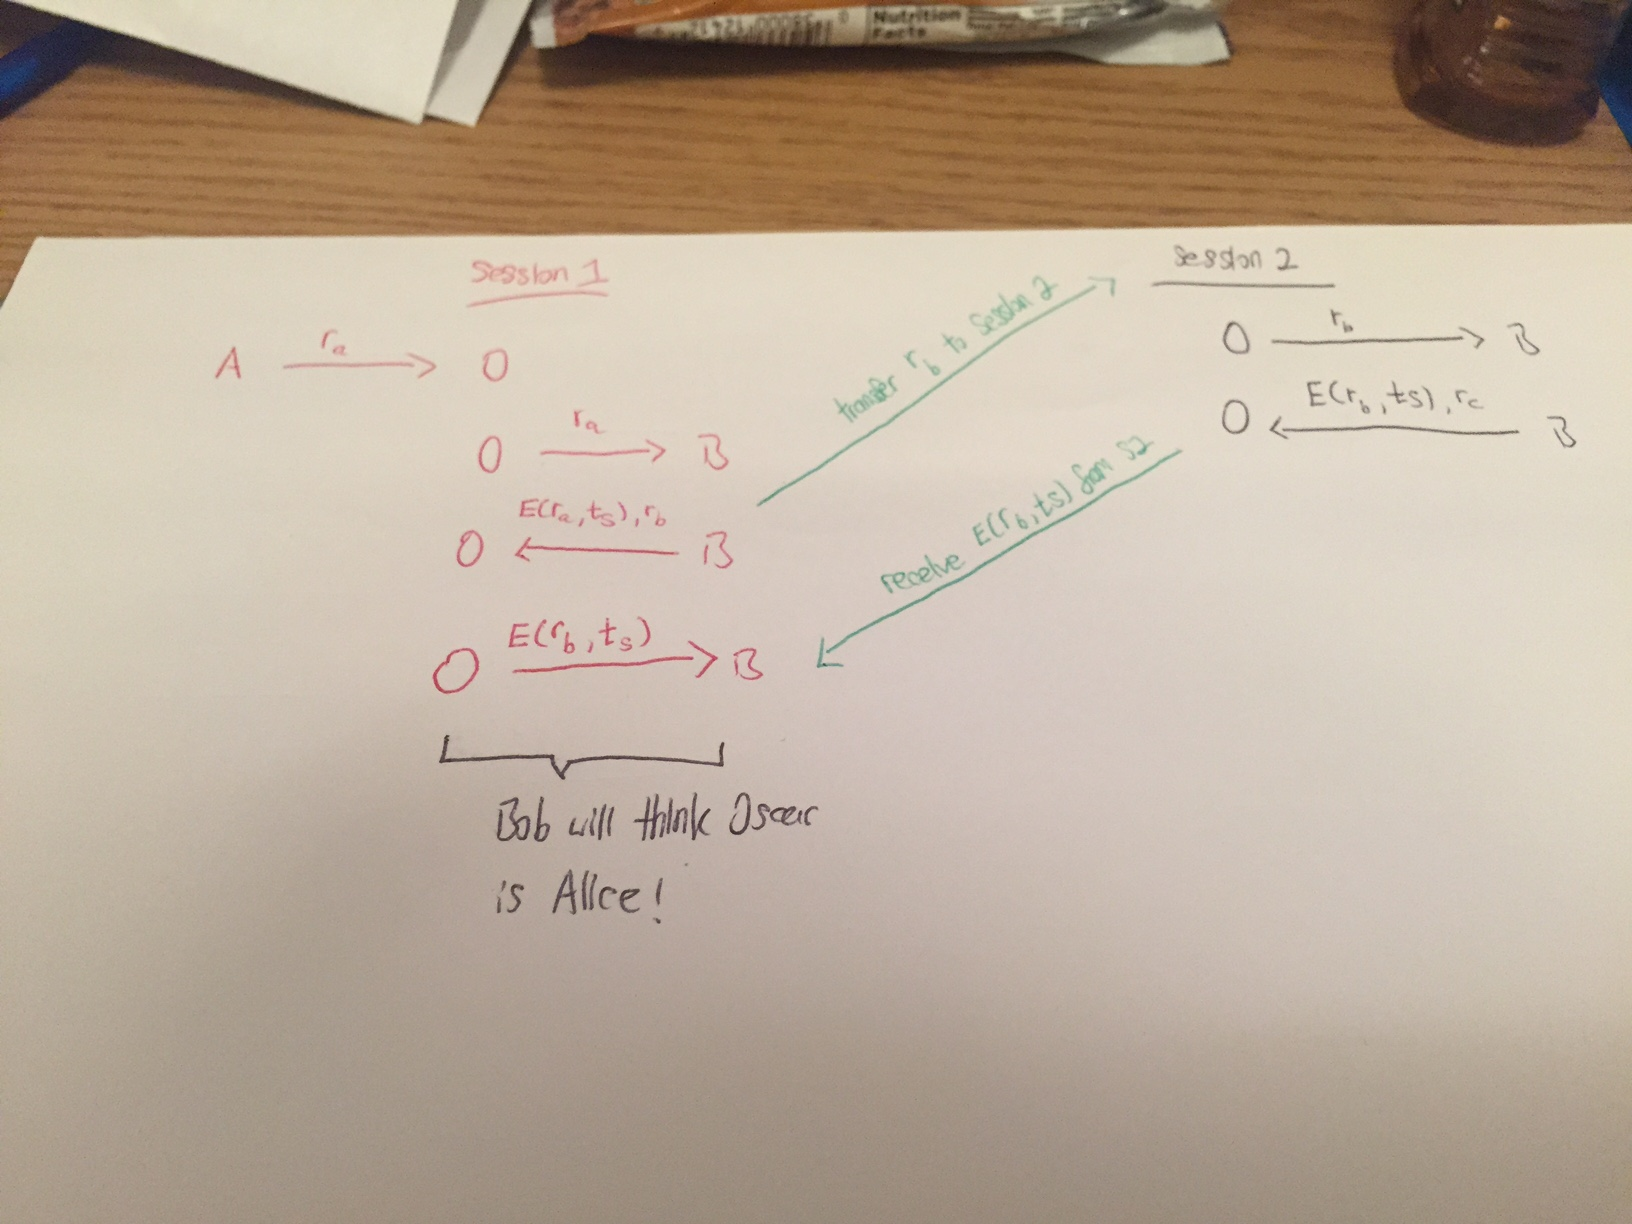 Nutrition
Facts
Session 1
A ra O
O ra B
E(ra,ts),rb
O B
E(rb,ts)
O B
Bob will think Oscar
is Alice!
transfer rb to Session 2
receive E(rb,ts) from S2
Session 2
O rb B
E(rb,ts),rc
O B